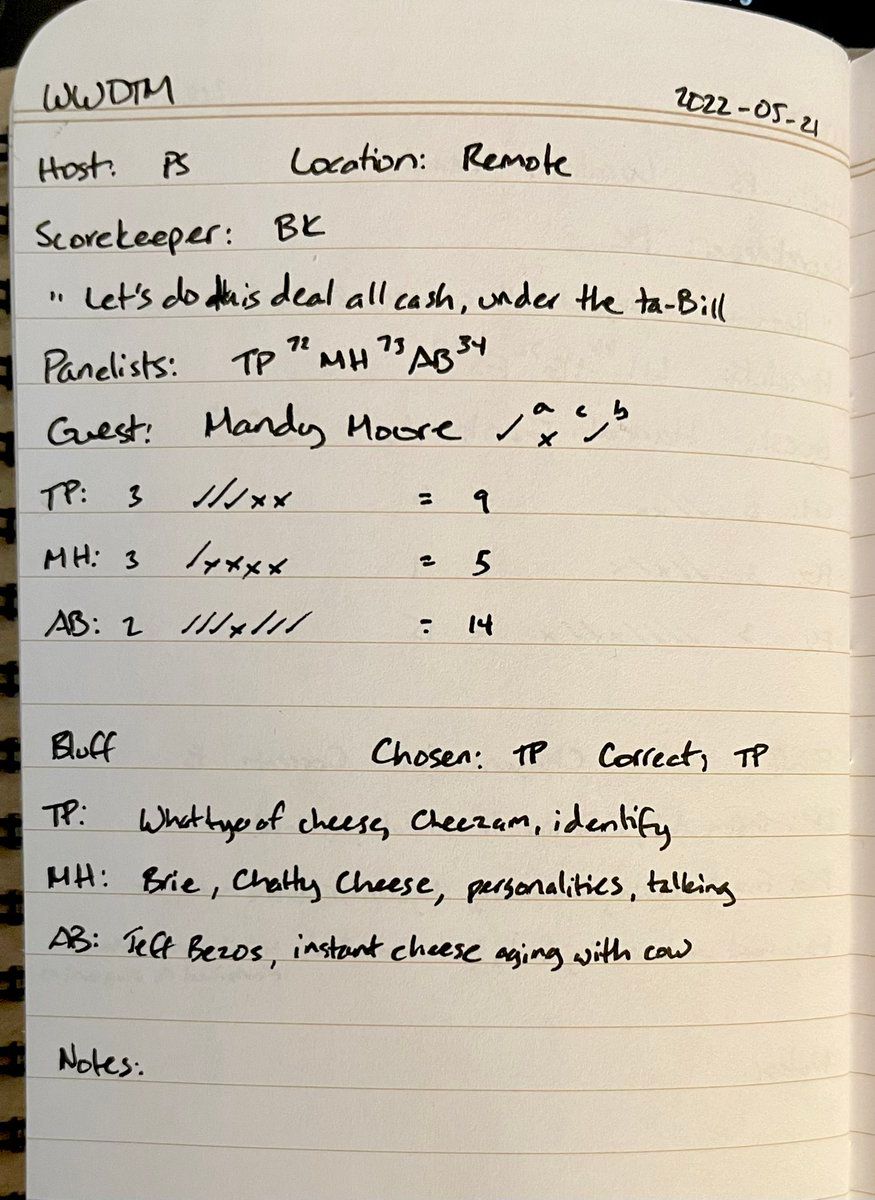 WWDTM 2022-05-21
Host: PS Location: Remote
Scorekeeper: BK
" Let's do this deal all cash, under the ta-Bill
Panelists: TP 72 MH 73 AB 34
Guest: Mandy Moore ✓ a x c ✓ b
TP: 3 ///xx = 9
MH: 3 /xxxx = 5
AB: 2 ///x/// = 14
Bluff Chosen: TP Correct; TP
TP: What type of cheese, Cheezam, identify
MH: Brie, Chatty Cheese, personalities, talking
AB: Jeff Bezos, instant cheese aging with cow
Notes: